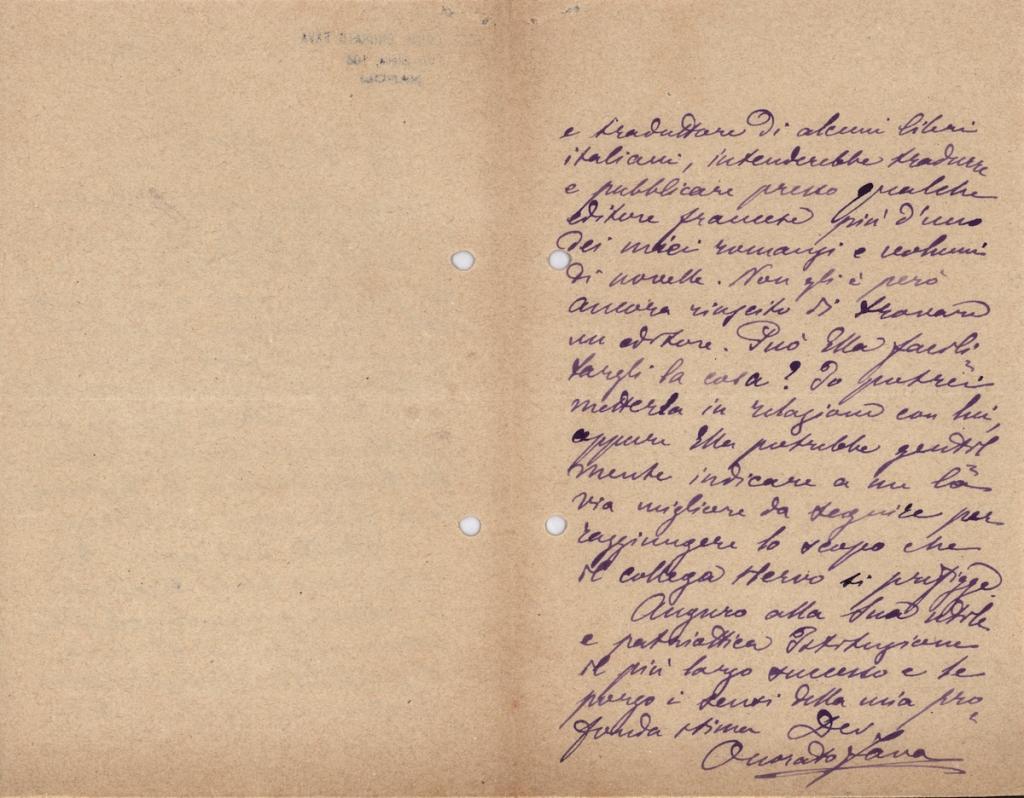 e traduttore di alcuni libri
italiani, intenderebbe tradurre
e pubblicare presso qualche
editore francese più d'uno
dei miei romanzi e volumi
di novelle. Non gli è però
ancora riuscito di trovare
un editore. Può Ella facili=
targli la cosa? Io potrei
metterla in relazione con lui,
oppure Ella potrebbe gentil=
mente indicare a me la
via migliore da seguire per
raggiungere lo scopo che
il collega stesso si prefigge.
Auguro alla Sua utile
e patriottica Istituzione
il più largo successo e le
porgo i sensi della mia pro=
fonda stima Dev.
Onorato Fava